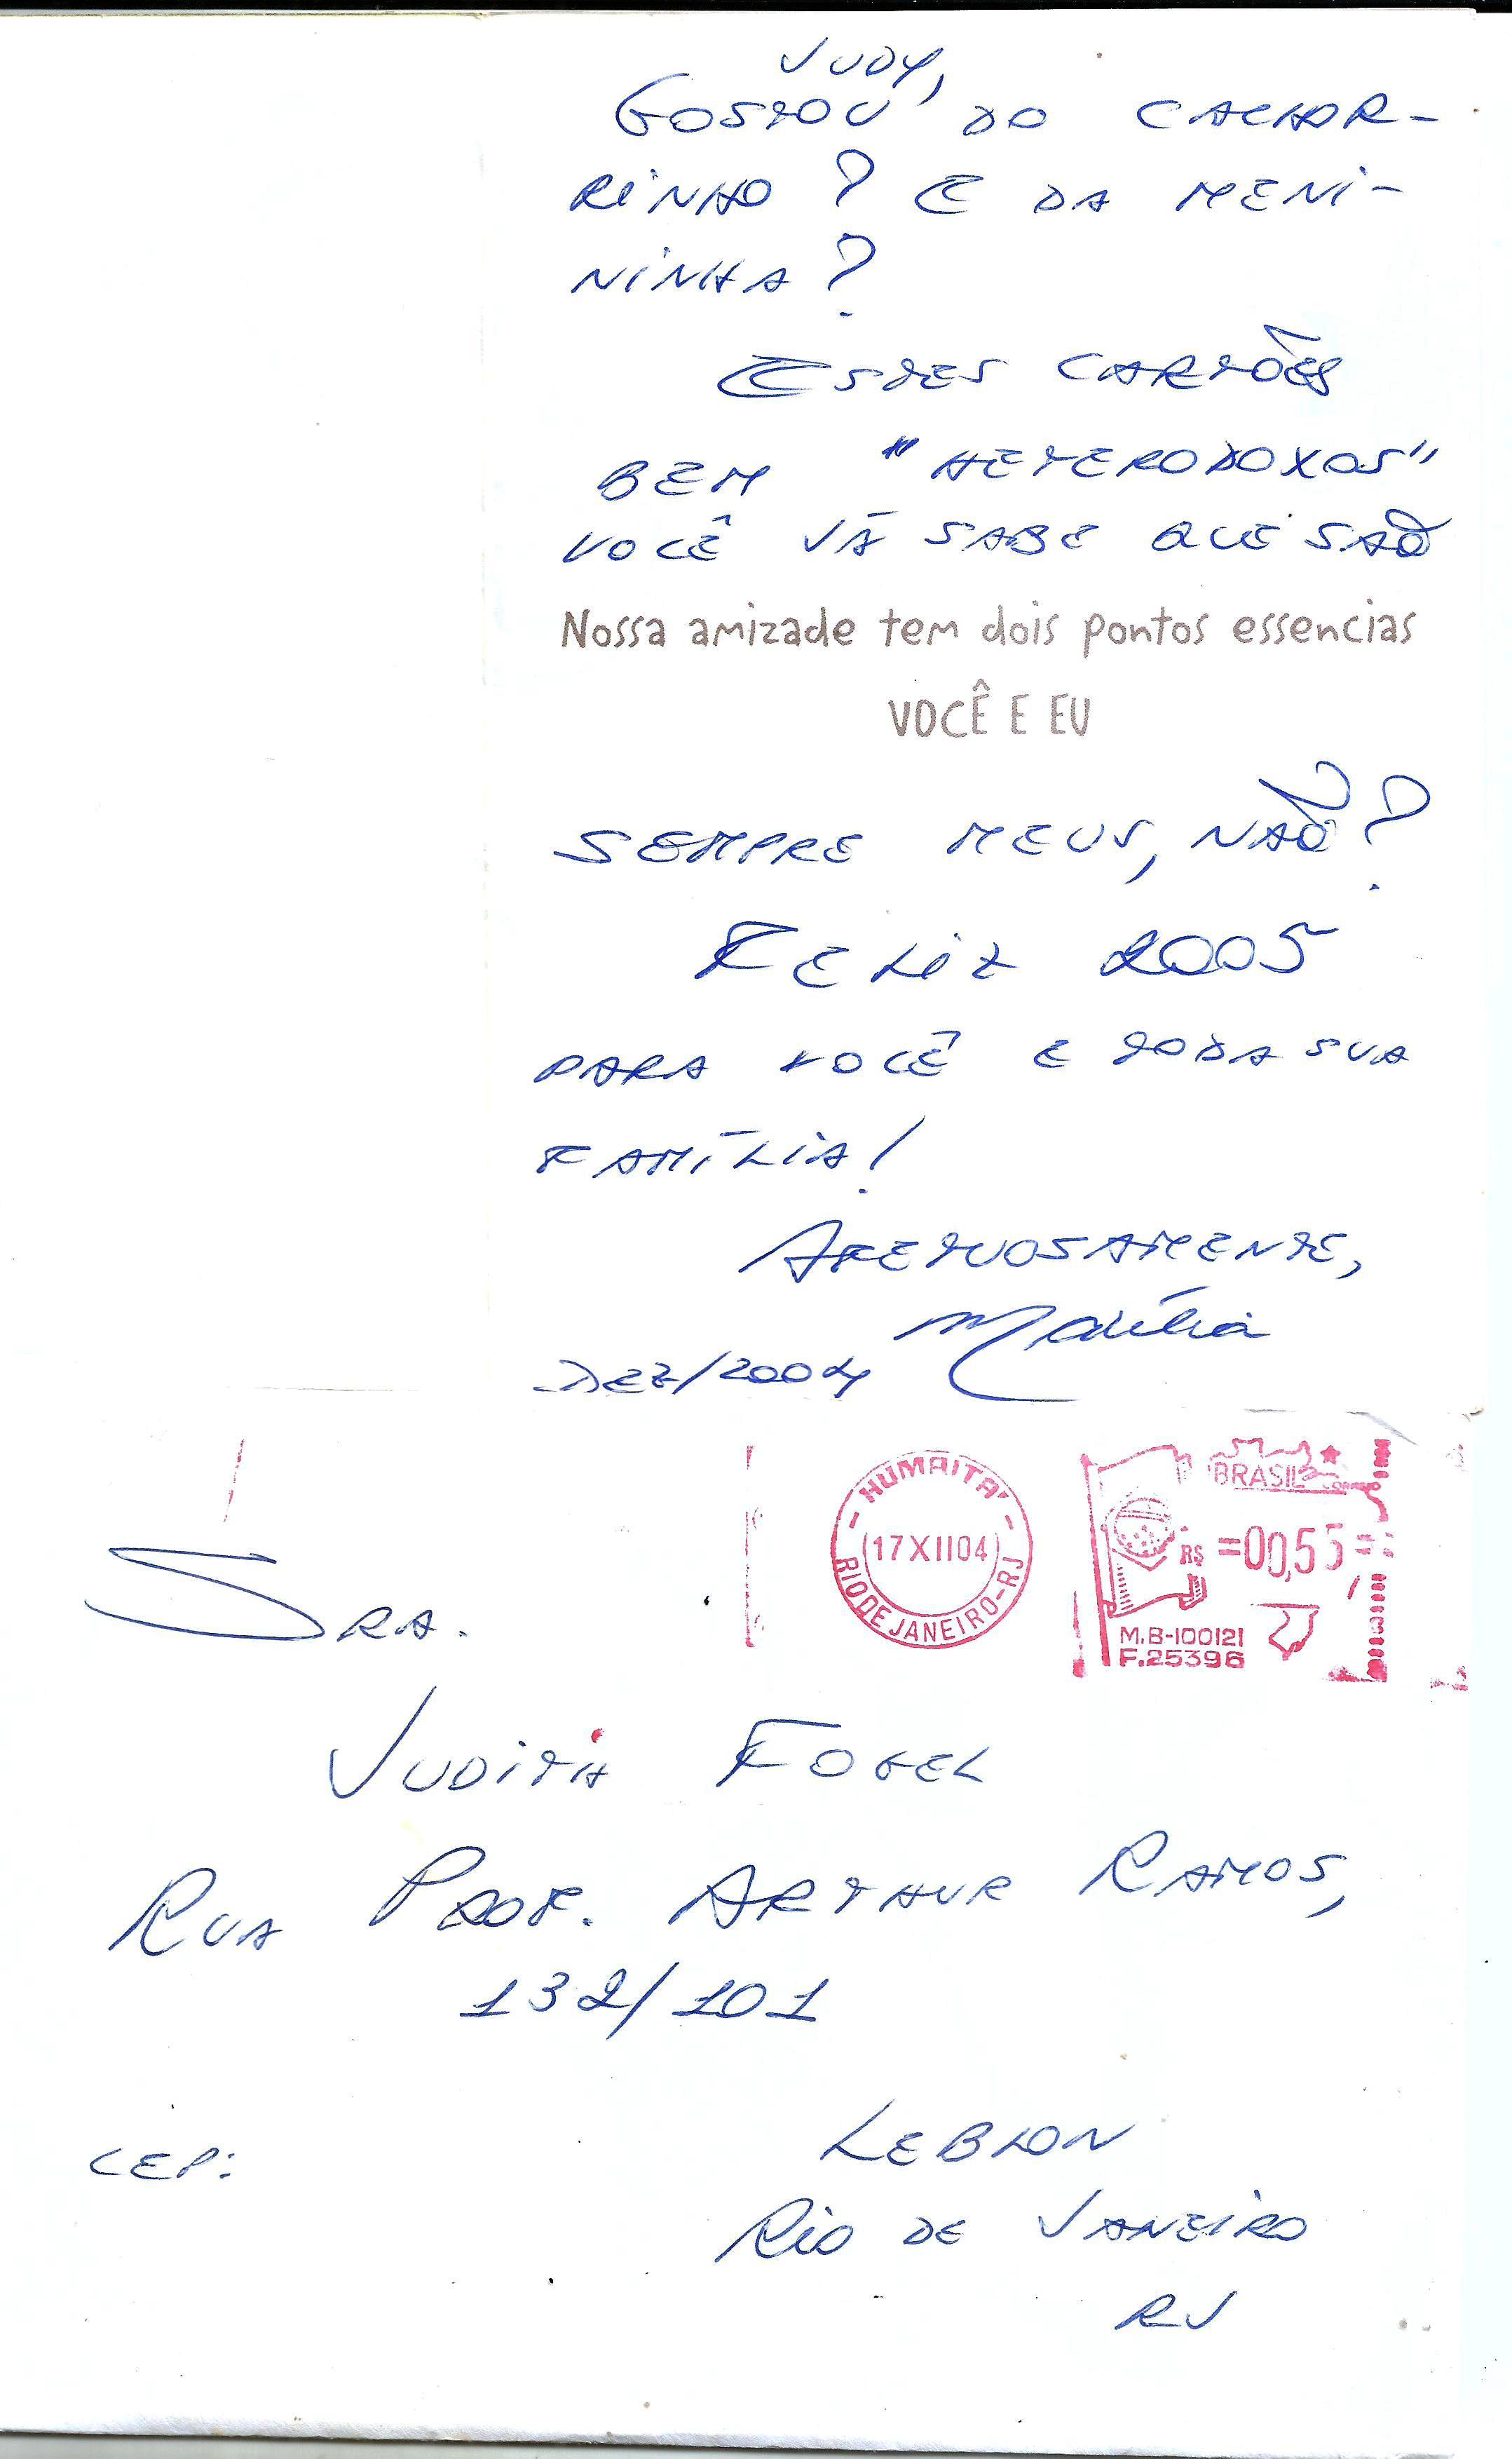 JUDY,
GOSTOU DO CACHOR-
RINHO? E DA MENI-
NINHA?
ESTES CARTÕES
BEM "HETERODOXOS"
VOCÊ JÁ SABE QUE SÃO
Nossa amizade tem dois pontos essencias
VOCÊ E EU
SEMPRE MEUS, NÃO?
FELIZ 2005
PARA VOCÊ E TODA SUA
FAMÍLIA!
AFETUOSAMENTE,
Marília
DEZ/2004
HUMAITA'
17XII04
RIO DE JANEIRO-RJ
BRASIL
R$ =00,55=
M.B-100121
F.25396
SRA.
JUDITH FOGEL
RUA PROF. ARTHUR RAMOS,
132/101
LEBLON
CEP:
RIO DE JANEIRO
RJ